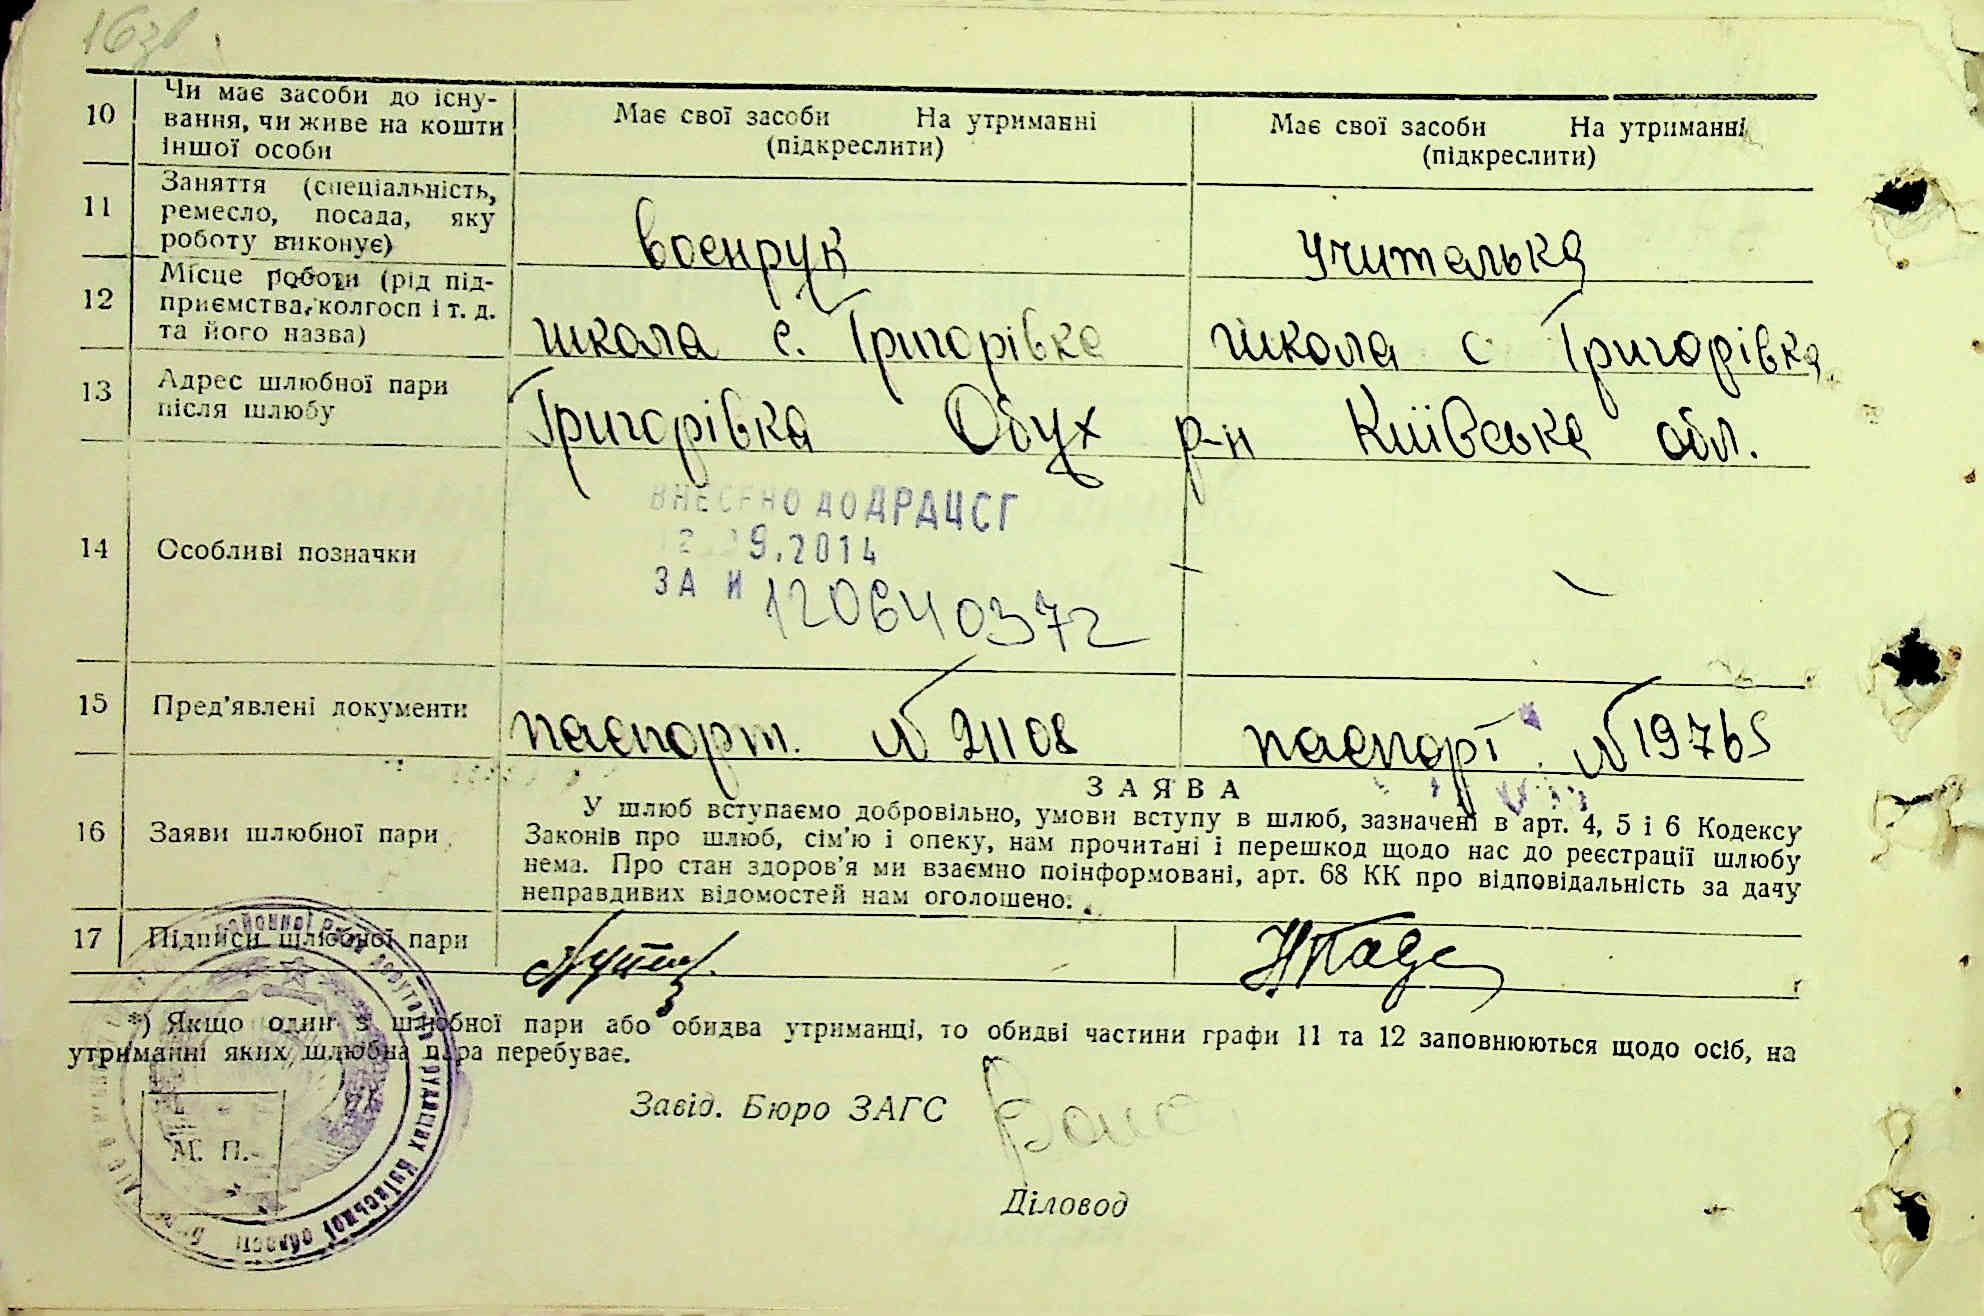 163в
10 Чи має засоби до існу-
вання, чи живе на кошти
іншої особи
Має свої засоби На утриманні
(підкреслити)
Має свої засоби На утриманні
(підкреслити)
11 Заняття (спеціальність,
ремесло, посада, яку
роботу виконує)
воєнрук
учителька
12 Місце роботи (рід під-
приємства, колгосп і т. д.
та його назва)
школа с. Григорівка
школа с Григорівка
13 Адрес шлюбної пари
після шлюбу
Григорівка Обух р-н Київська обл.
14 Особливі позначки
ВНЕСЕНО ДО ДРАЦСГ
9.2014
ЗА N 120640372
15 Пред'явлені документи
паспорт. N 21108
паспорт. N 19765
16 Заяви шлюбної пари
ЗАЯВА
У шлюб вступаємо добровільно, умови вступу в шлюб, зазначені в арт. 4, 5 і 6 Кодексу
Законів про шлюб, сім'ю і опеку, нам прочитані і перешкод щодо нас до реєстрації шлюбу
нема. Про стан здоров'я ми взаємно поінформовані, арт. 68 КК про відповідальність за дачу
неправдивих відомостей нам оголошено.
17 Підписи шлюбної пари
*) Якщо один з шлюбної пари або обидва утриманці, то обидві частини графи 11 та 12 заповнюються щодо осіб, на
утриманні яких шлюбна пара перебуває.
Завід. Бюро ЗАГС
М. П.
районної ради депутатів трудящих Київської області
Діловод